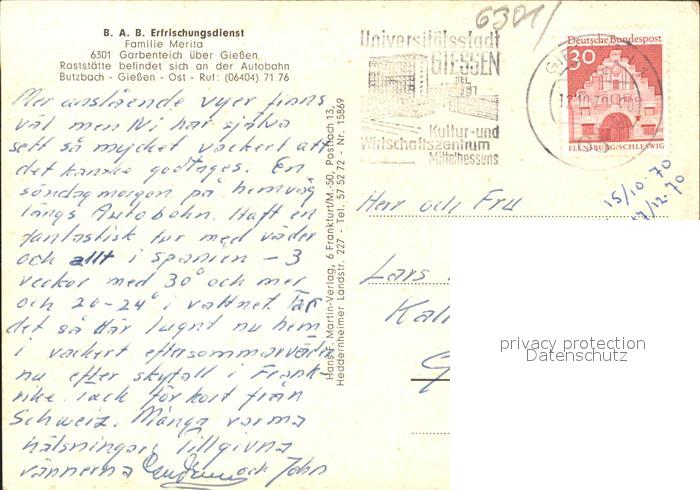 B. A. B. Erfrischungsdienst
Familie Merita
6301 Garbenteich über Gießen
Raststätte befindet sich an der Autobahn
Butzbach - Gießen - Ost - Ruf: (06404) 71 76
Mer anslående vyer finns
väl men Ni har själva
sett så mycket vackert att
det kanske godtages. En
söndagmorgon på hemväg
längs Autobahn. Haft en
fantastisk tur med väder
och allt i Spanien - 3
veckor med 30° och mer
och 20-24° i vattnet. Tar
det så här lugnt nu hem
i vackert eftersommarväder
nu efter skyfall i Frank-
rike. Tack för kort från
Schweiz. Många varma
hälsningar, tillgivna
vännerna och John
Hans F. Martin-Verlag, 6 Frankfurt/M.-50, Postfach 13,
Heddernheimer Landstr. 227 - Tel. 57 52 72 - Nr. 15869
6301
Universitätsstadt
GIESSEN
Kultur-und
Wirtschaftszentrum
Mittelhessens
Deutsche Bundespost
30
FLENSBURG/SCHLESWIG
Herr och Fru
15/10.70
Lars
privacy protection
Datenschutz